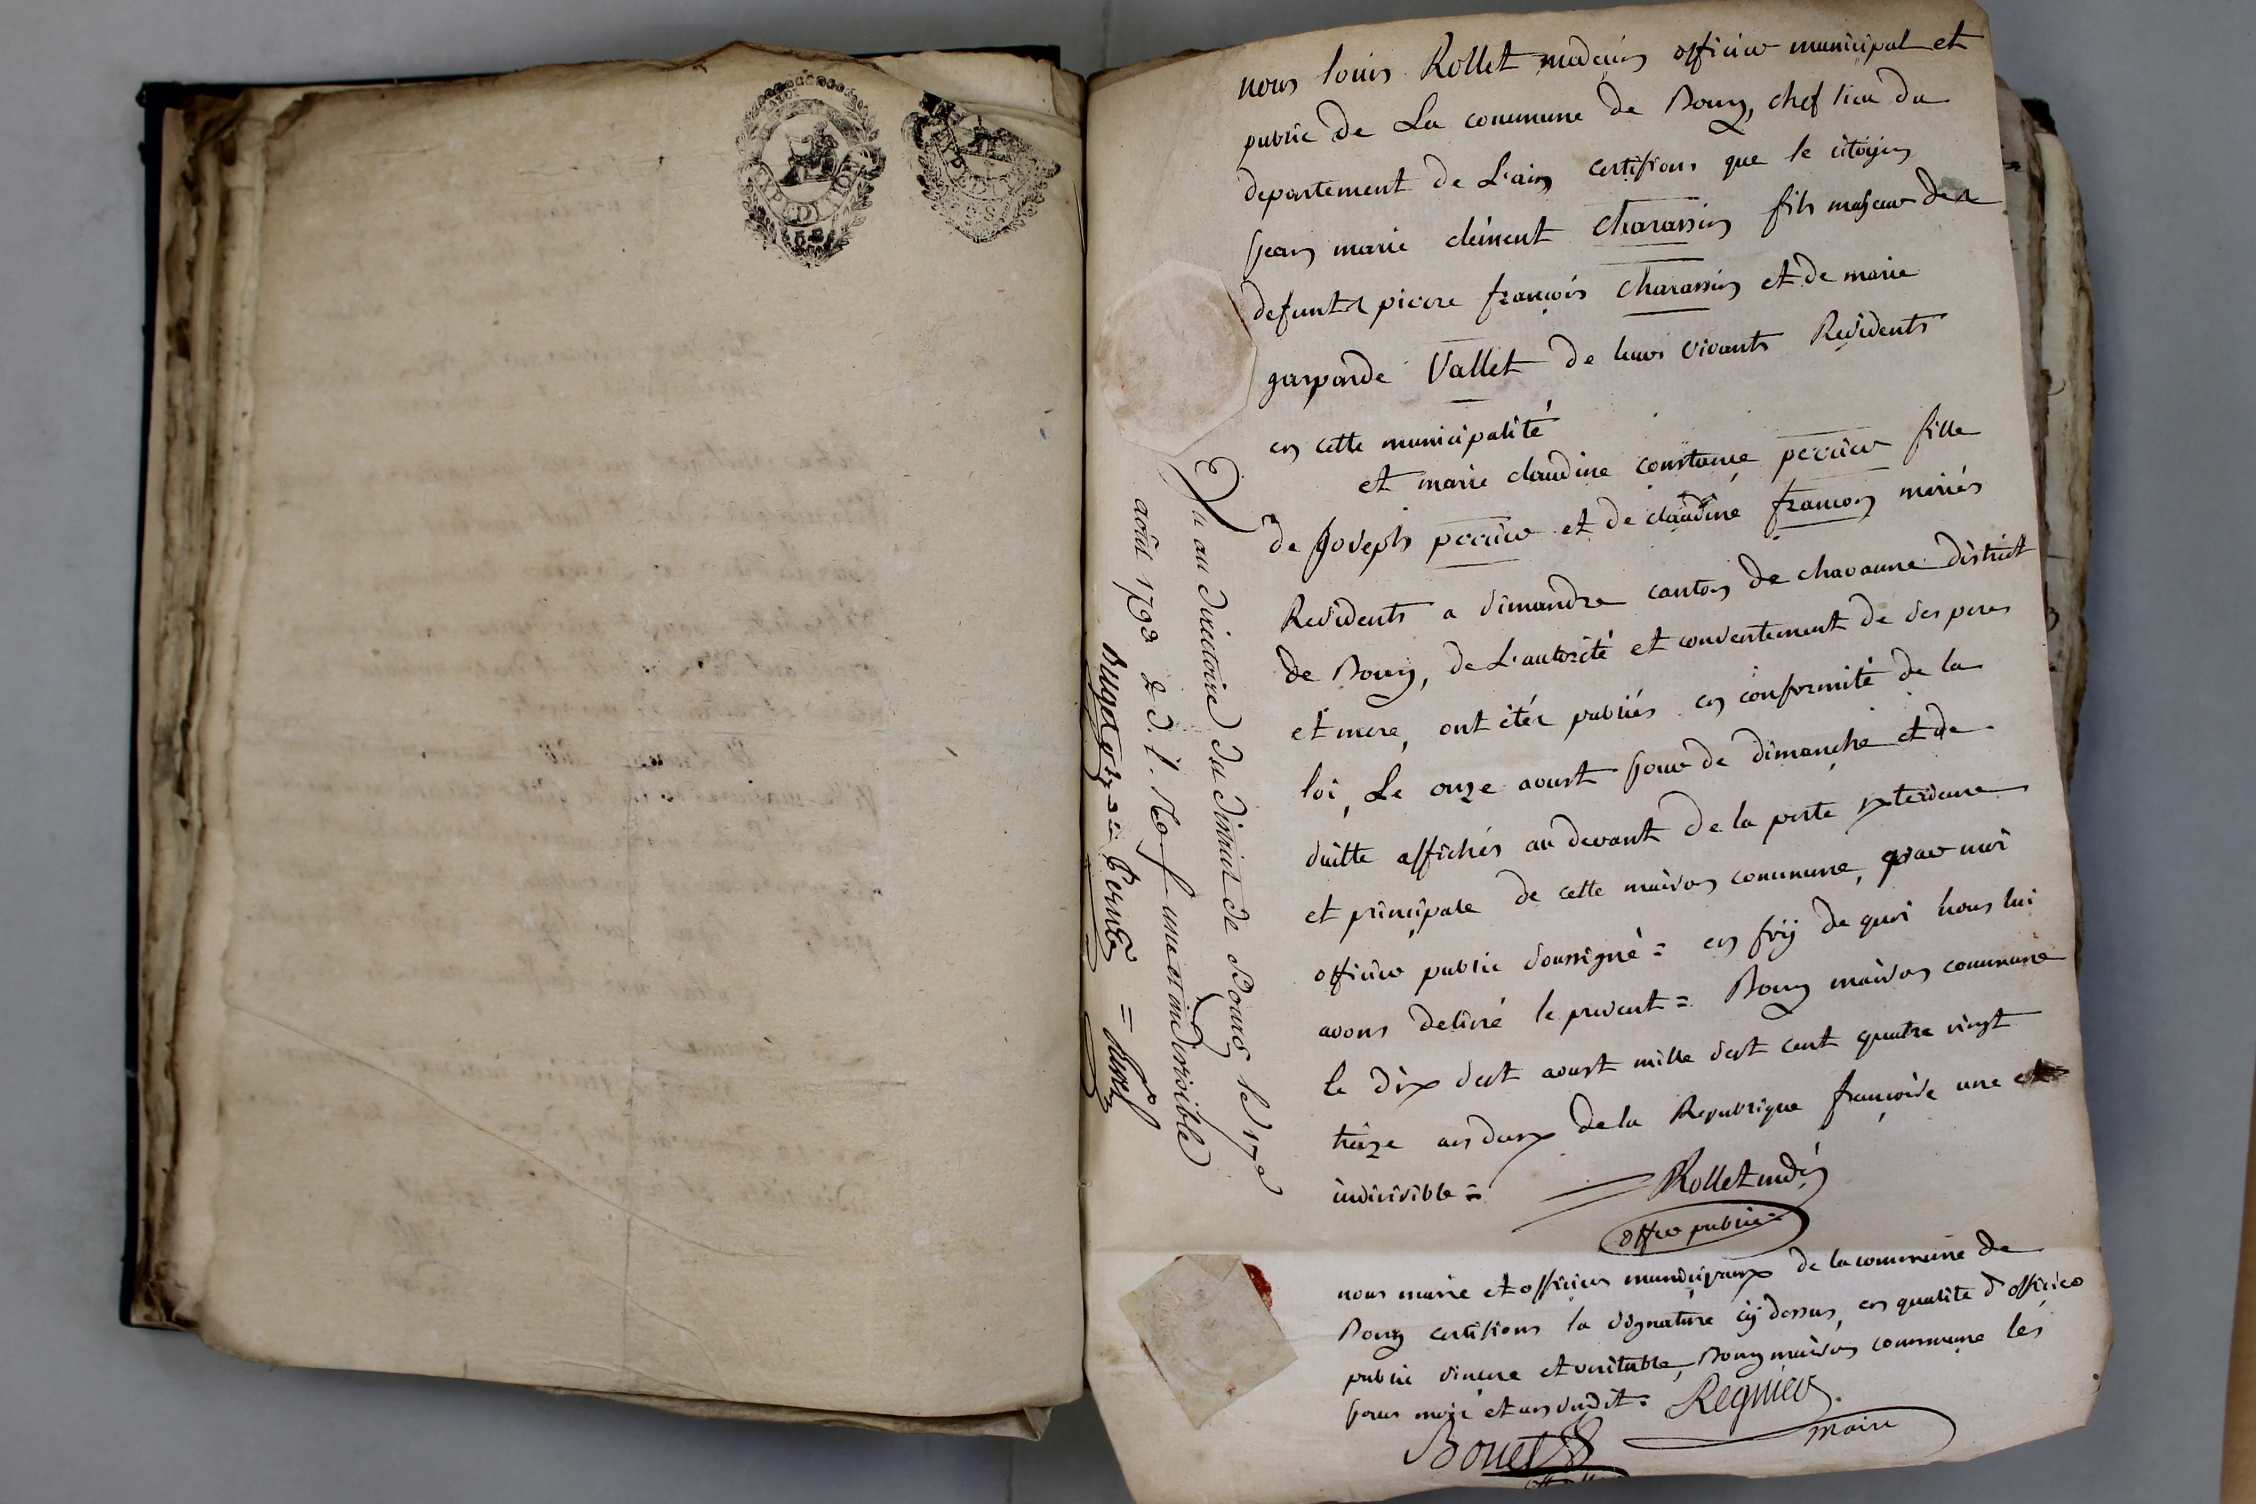 nous louis Rollet medecin officier municipal et
public de La commune de Bourg, chef lieu du
departement de L'ain certifions que le citoyen
jean marie clément charassin fils majeur de
defunts pierre françois charassin et de marie
gasparde Vallet de leurs vivants Residents
en cette municipalité
et marie claudine constance perrier fille
de joseph perrier et de claudine françon mariés
Residents a simandre canton de chavanne district
de Bourg, de L'autorité et consentement de ses peres
et mere, ont étés publiés en conformité de la
loi, Le onze aoust jour de dimanche et de
suitte affichés au devant de la porte exterieure
et principale de cette maison commune, par moi
officier public soussigné = en foy de quoi nous lui
avons delivré le present = Bourg maison commune
le dix sept aoust mille sept cent quatre vingt
treize an deux de la Republique françoise une et
indivisible =
Rollet md.n
offier public
nous maire et officiers municipaux de la commune de
Bourg certifions la signature cy dessus, en qualité d'officier
public sincere et veritable, Bourg maison commune les
jours mois et an susdit = Regnier
maire
Bouet
Vu au directoire du district de Bourg le 17e
août 1793 2 d. l. Rep. f. une et indivisible
EXPEDITION